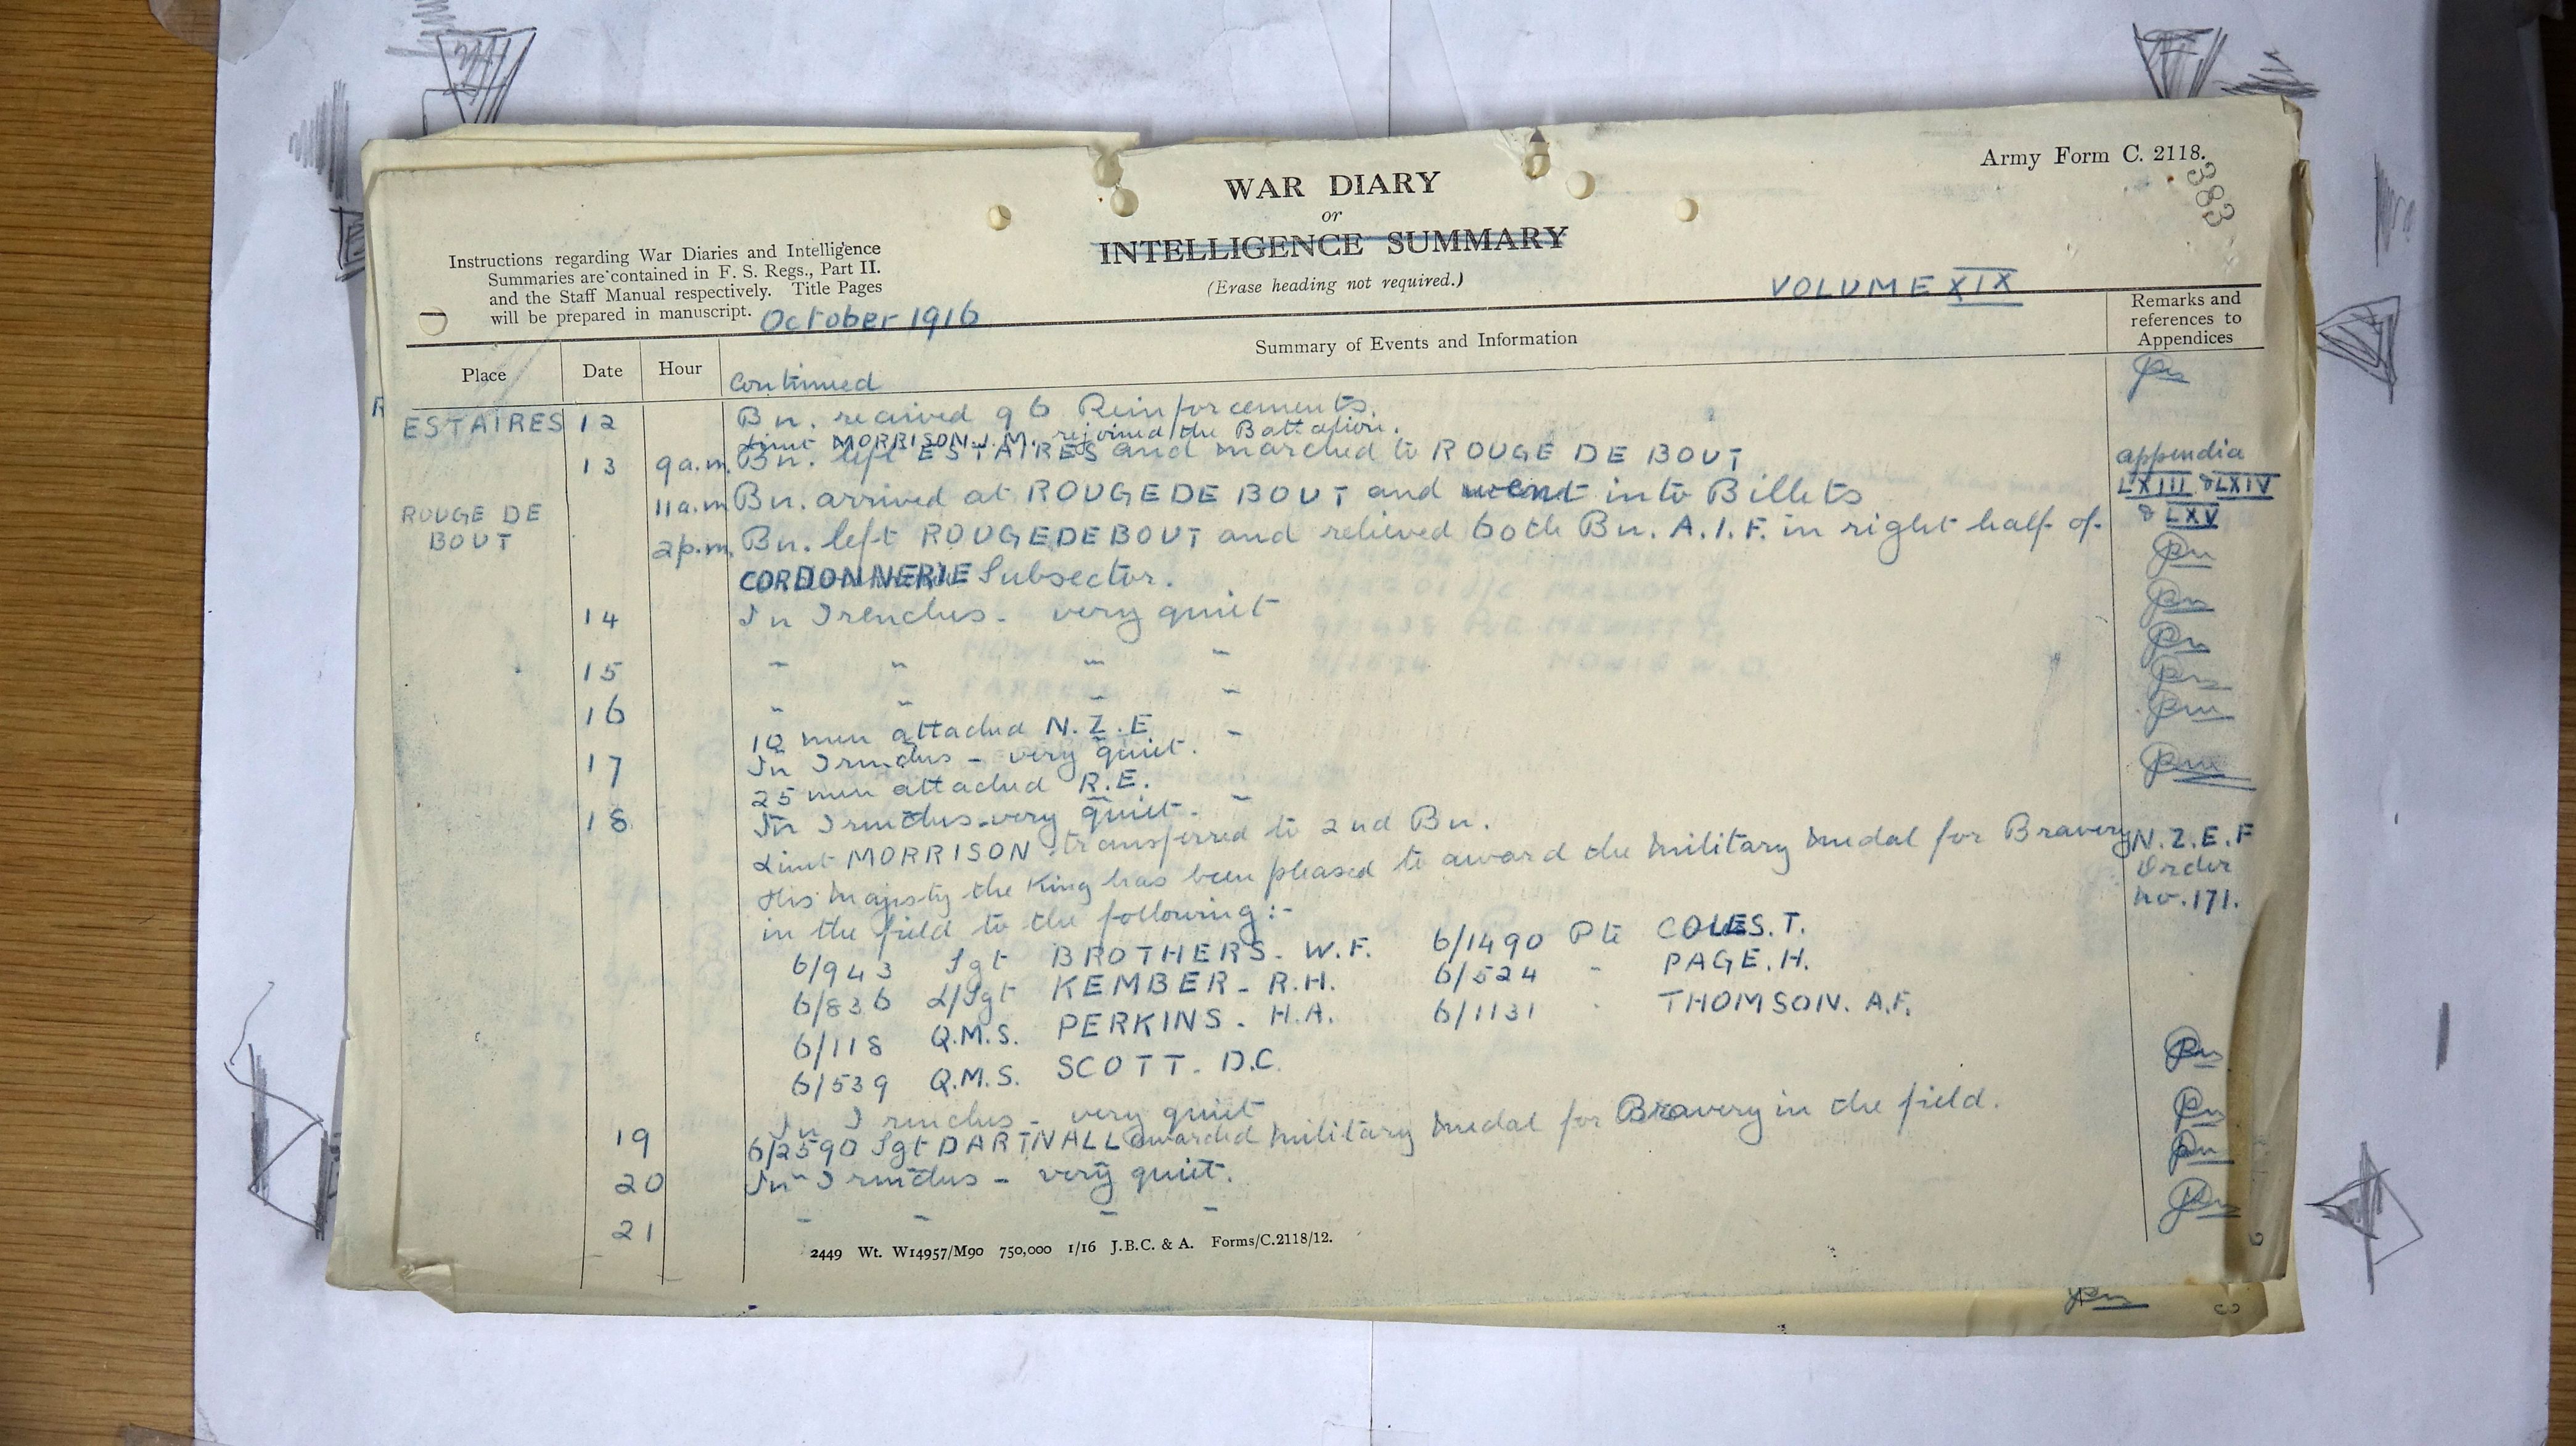 Army Form C. 2118.
383
WAR DIARY
or
INTELLIGENCE SUMMARY
(Erase heading not required.)
Instructions regarding War Diaries and Intelligence
Summaries are contained in F. S. Regs., Part II.
and the Staff Manual respectively. Title Pages
will be prepared in manuscript.
October 1916
VOLUME XIX
Place Date Hour Summary of Events and Information Remarks and references to Appendices
Continued
ESTAIRES 12 Bn. recived 96 Reinforcements.
Lieut MORRISON J.M. rejoined the Battalion.
13 9 a.m. Bn. left ESTAIRES and marched to ROUGE DE BOUT appendia
LXIII & LXIV
& LXV
ROUGE DE BOUT 11 a.m Bn. arrived at ROUGE DE BOUT and went into Billets
2 p.m. Bn. left ROUGE DE BOUT and relieved 60th Bn. A.I.F. in right half of
CORDONNERIE Subsector.
14 In Trenches - very quiet
15 " " " "
16 " " " "
10 men attached N.Z.E
17 In Trenches - very quiet.
25 men attached R.E.
18 In Trenches - very quiet.
Lieut MORRISON transferred to 2nd Bn.
His Majesty the King has been pleased to award the Military Medal for Bravery N.Z.E.F
Order
No. 171.
in the field to the following :-
6/943 Sgt BROTHERS. W.F. 6/1490 Pte COLES. T.
6/836 L/Sgt KEMBER. R.H. 6/524 " PAGE. H.
6/118 Q.M.S. PERKINS. H.A. 6/1131 " THOMSON. A.F.
6/539 Q.M.S. SCOTT. D.C.
19 In Trenches - very quiet
6/2590 Sgt DARTNALL awarded Military Medal for Bravery in the field.
20 In Trenches - very quiet.
21 " " " "
2449 Wt. W14957/M90 750,000 1/16 J.B.C. & A. Forms/C.2118/12.